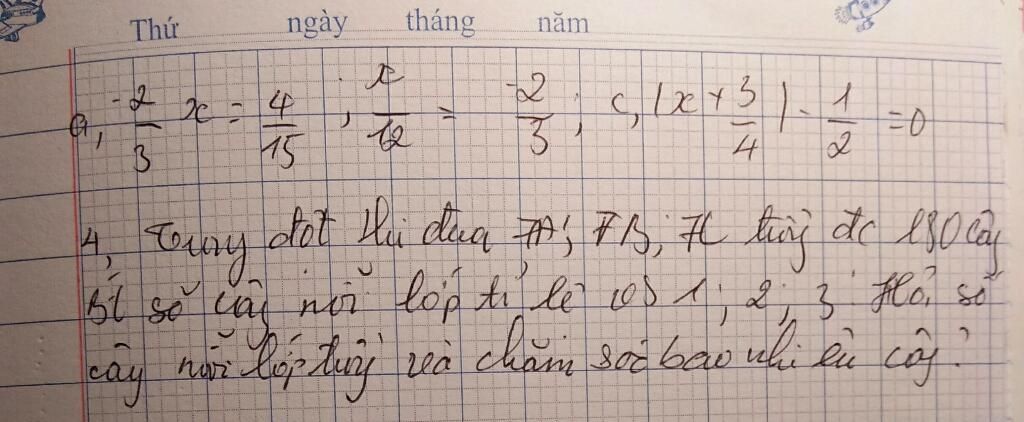 Thứ ngày tháng năm
a, -2/3 x = 4/15 ; x/12 = -2/3 ; c, |x + 3/4| - 1/2 = 0
4, Trong đợt thi đua 7A; 7B; 7C trồng đc 180 cây
Bt số cây mỗi lớp tỉ lệ vs 1; 2; 3. Hỏi số
cây mỗi lớp trồng và chăm sóc bao nhiêu cây?